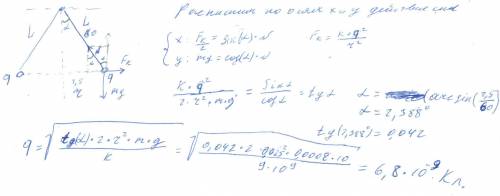 Распишем по осям x и y действие сил
L
L
60
α
α
q
q
Fк
7,5
r
mg
{ x: Fк/2 = sin(α)·N
{ y: mg = cos(α)·N
Fк = k·q²/r²
k·q²/2·r²·m·g = sinα/cosα = tgα
α = arcsin(2,5/60)
α = 2,388°
tg(2,388°) = 0,042
q = √(tg(α)·2·r²·m·g/k) = √(0,042·2·0,025²·0,0008·10/9·10⁹) = 6,8·10⁻⁹ Кл.